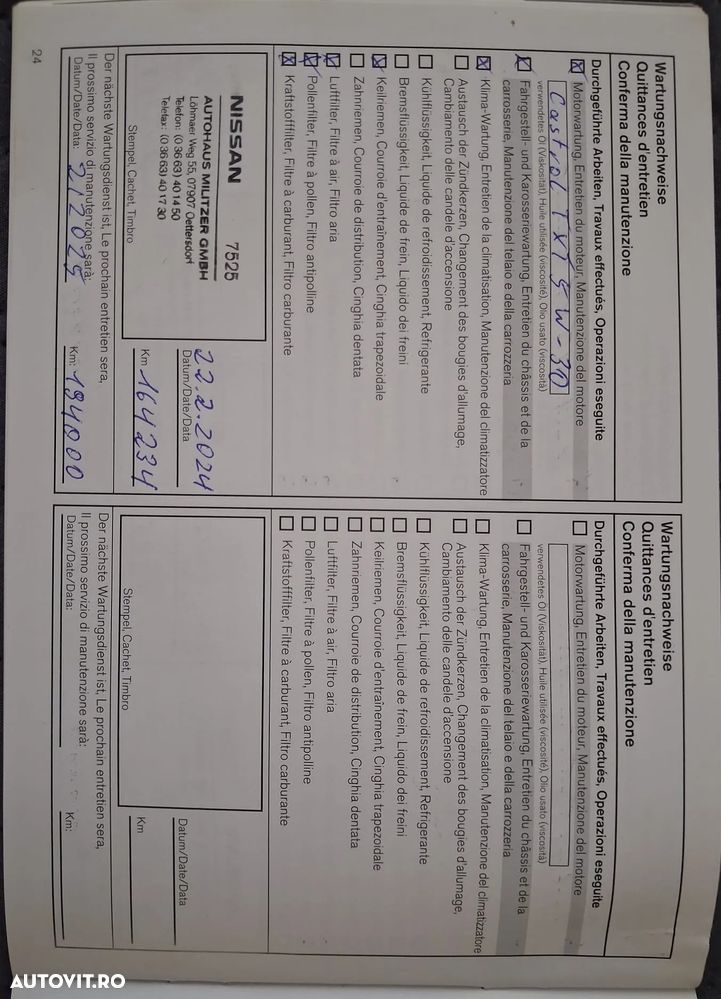 Wartungsnachweise
Quittances d'entretien
Conferma della manutenzione
Durchgeführte Arbeiten, Travaux effectués, Operazioni eseguite
Motorwartung, Entretien du moteur, Manutenzione del motore
Castrol TXT 5W-30
verwendetes Öl (Viskosität), Huile utilisée (viscosité), Olio usato (viscosità)
Fahrgestell- und Karosseriewartung, Entretien du châssis et de la
carrosserie, Manutenzione del telaio e della carrozzeria
Klima-Wartung, Entretien de la climatisation, Manutenzione del climatizzatore
Austausch der Zündkerzen, Changement des bougies d'allumage,
Cambiamento delle candele d'accensione
Kühlflüssigkeit, Liquide de refroidissement, Refrigerante
Bremsflüssigkeit, Liquide de frein, Liquido dei freini
Keilriemen, Courroie d'entraînement, Cinghia trapezoidale
Zahnriemen, Courroie de distribution, Cinghia dentata
Luftfilter, Filtre à air, Filtro aria
Pollenfilter, Filtre à pollen, Filtro antipolline
Kraftstofffilter, Filtre à carburant, Filtro carburante
NISSAN 7525
AUTOHAUS MILITZER GMBH
Löhmaer Weg 55, 07907 Oettersdorf
Telefon: (0 36 63) 40 14 50
Telefax: (0 36 63) 40 17 30
Stempel, Cachet, Timbro
22.2.2024
Datum/Date/Data
Km 164234
Der nächste Wartungsdienst ist, Le prochain entretien sera,
Il prossimo servizio di manutenzione sarà:
Datum/Date/Data: 2/2025
Km: 184000
24
Wartungsnachweise
Quittances d'entretien
Conferma della manutenzione
Durchgeführte Arbeiten, Travaux effectués, Operazioni eseguite
Motorwartung, Entretien du moteur, Manutenzione del motore
verwendetes Öl (Viskosität), Huile utilisée (viscosité), Olio usato (viscosità)
Fahrgestell- und Karosseriewartung, Entretien du châssis et de la
carrosserie, Manutenzione del telaio e della carrozzeria
Klima-Wartung, Entretien de la climatisation, Manutenzione del climatizzatore
Austausch der Zündkerzen, Changement des bougies d'allumage,
Cambiamento delle candele d'accensione
Kühlflüssigkeit, Liquide de refroidissement, Refrigerante
Bremsflüssigkeit, Liquide de frein, Liquido dei freini
Keilriemen, Courroie d'entraînement, Cinghia trapezoidale
Zahnriemen, Courroie de distribution, Cinghia dentata
Luftfilter, Filtre à air, Filtro aria
Pollenfilter, Filtre à pollen, Filtro antipolline
Kraftstofffilter, Filtre à carburant, Filtro carburante
Stempel, Cachet, Timbro
Datum/Date/Data
Km
Der nächste Wartungsdienst ist, Le prochain entretien sera,
Il prossimo servizio di manutenzione sarà:
Datum/Date/Data:
Km:
AUTOVIT.RO